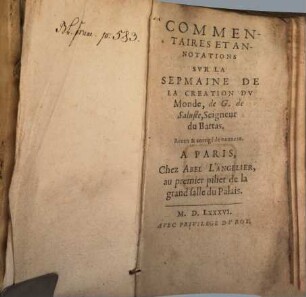 p. 583.
COMMEN-
TAIRES ET AN-
NOTATIONS
SVR LA
SEPMAINE DE
LA CREATION DV
Monde, de G. de
Saluste, Seigneur
du Bartas,
A PARIS,
Chez ABEL L'ANGELIER,
au premier pilier de la
grand salle du Palais.
M. D. LXXXVI.
AVEC PRIVILEGE DV ROY.